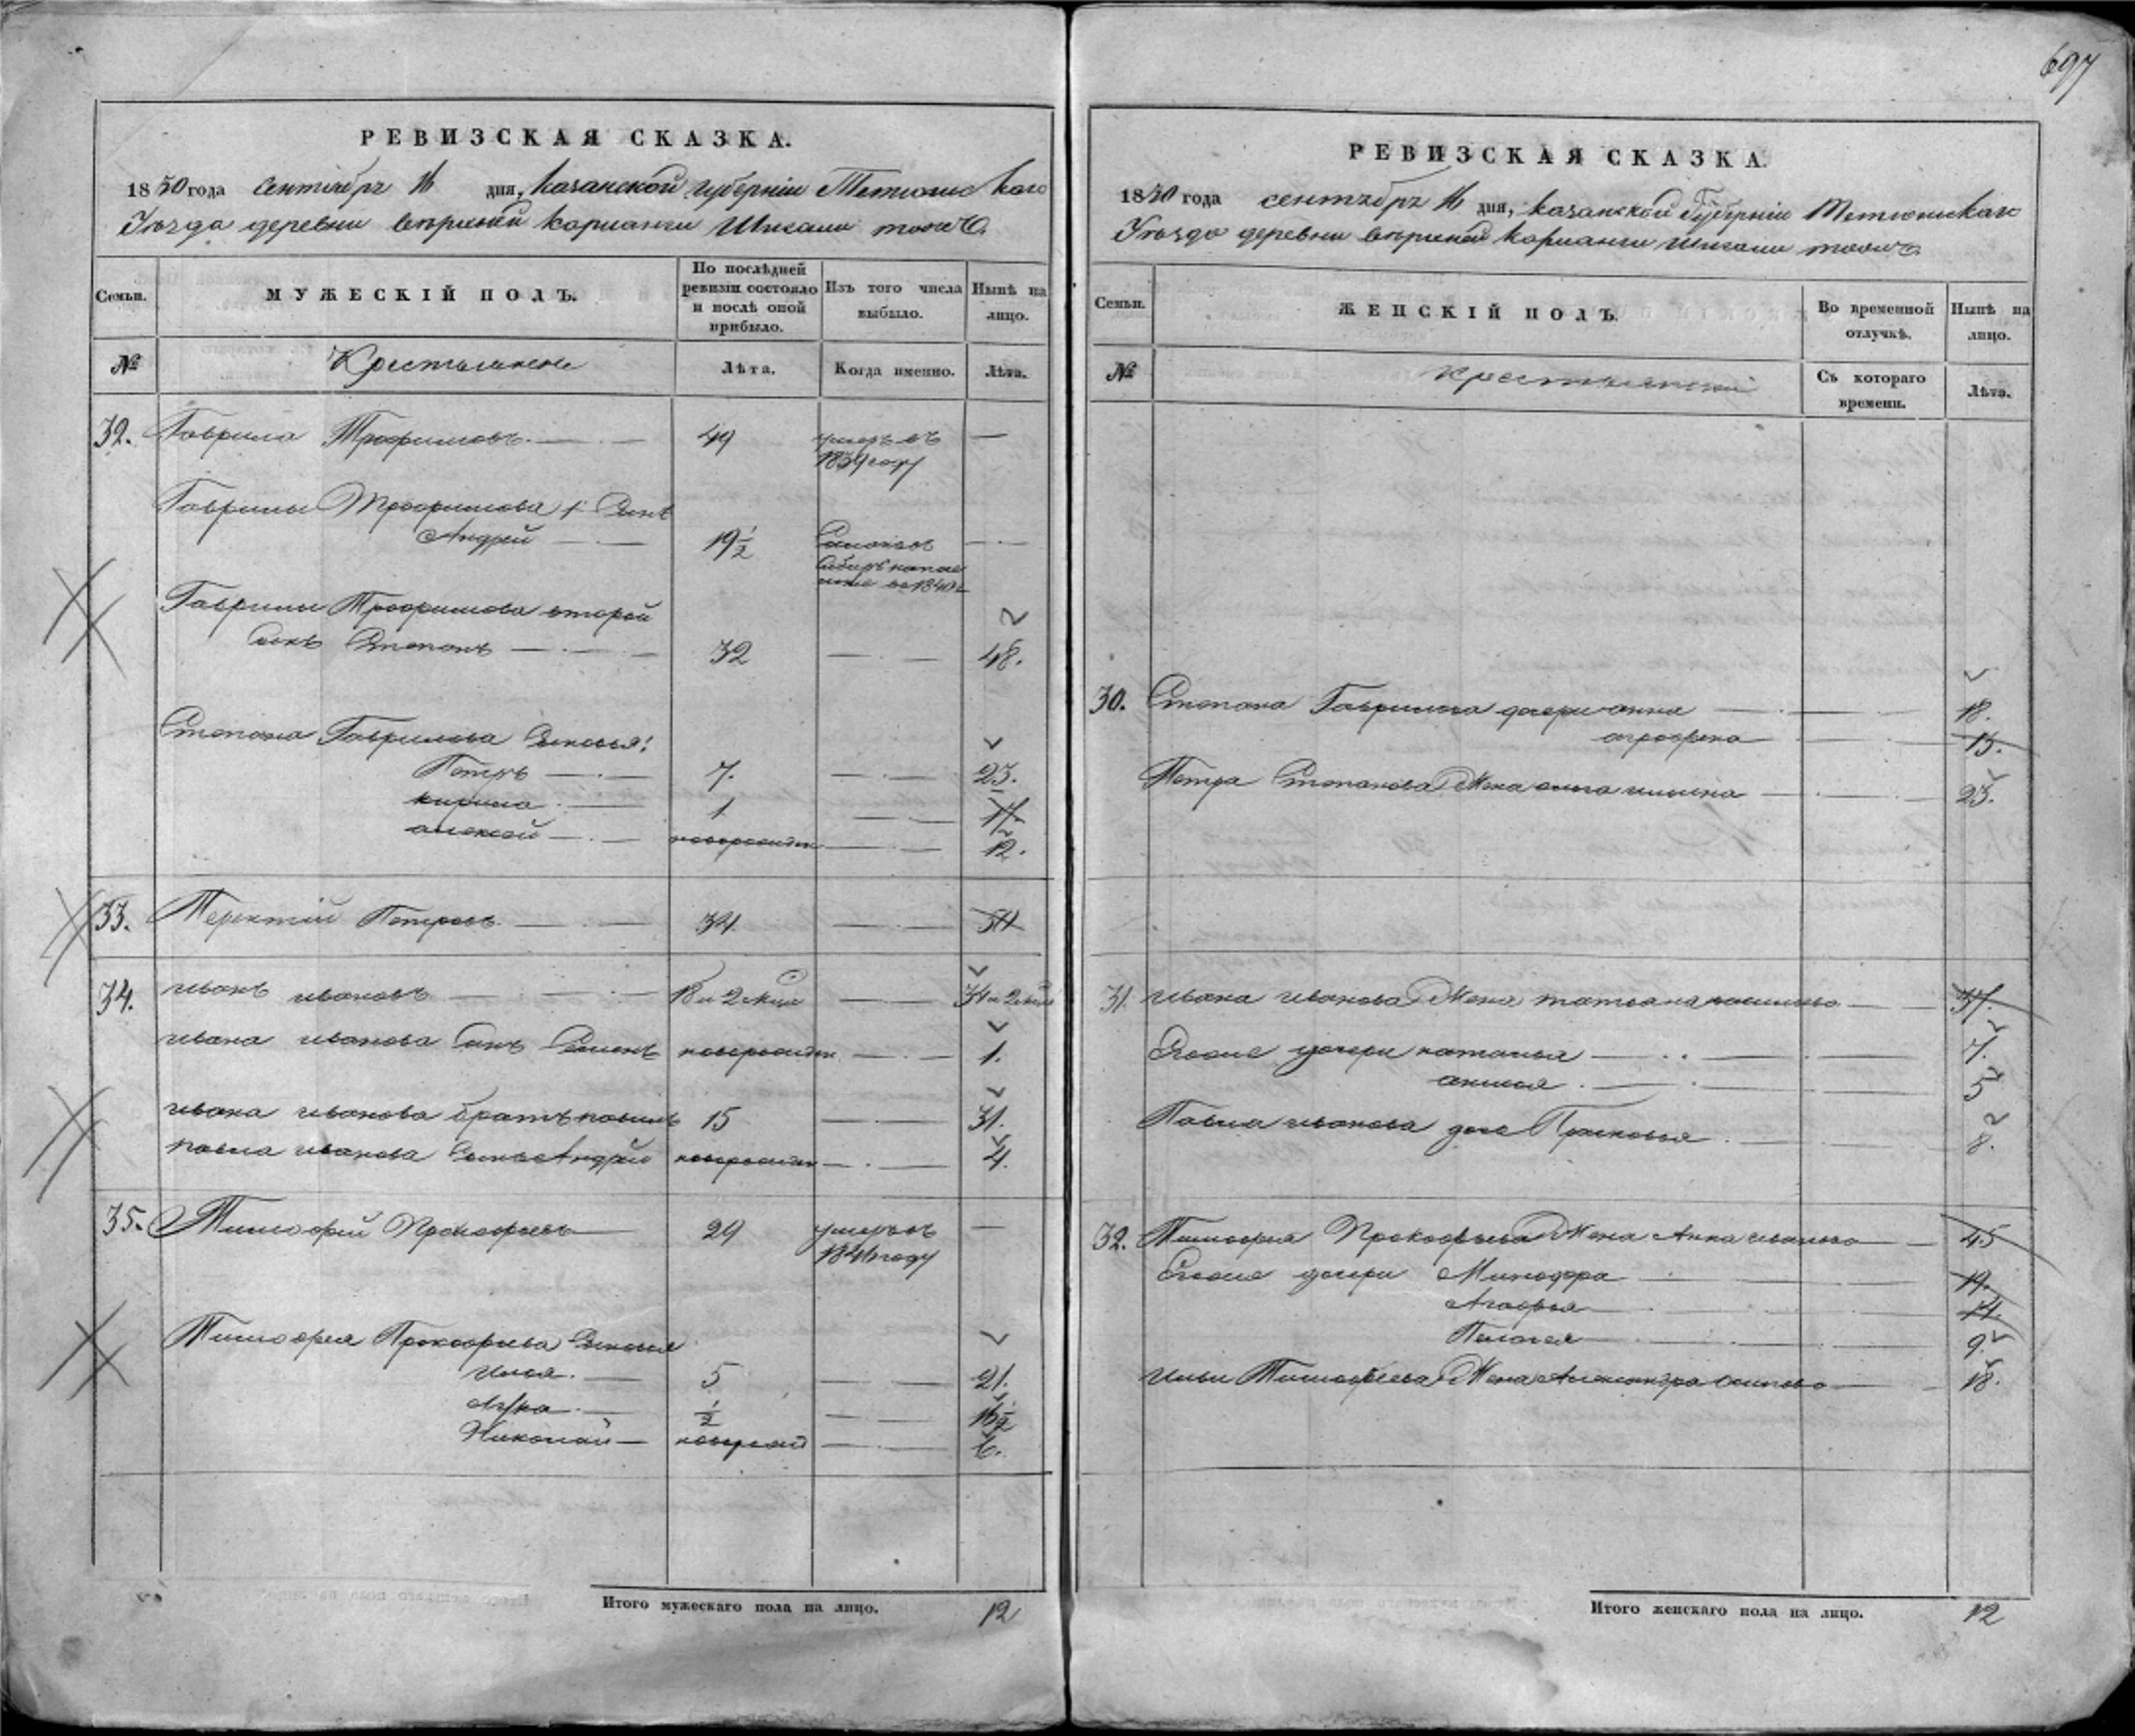 697
РЕВИЗСКАЯ СКАЗКА.
1850 года сентября 16 дня, Казанской губернiи Тетюшскаго
Уѣзда деревни
Семьи.
МУЖЕСКІЙ ПОЛЪ.
По послѣдней ревизіи состояло и послѣ оной прибыло.
Изъ того числа выбыло.
Нынѣ на лицо.
№
Крестьянъ
Лѣта.
Когда именно.
Лѣта.
32. Гаврила Трофимовъ 49 умеръ въ —
1839 году
Гаврилы Трофимова 1 Сынъ
Андрей 19 1/2
Сибирь 1840
Гаврилы Трофимова второй
сынъ Степанъ 32 48.
Степана Гаврилова Сыновья:
Петръ 7. 23.
кирила 1 17
алексей новорожден 12.
33. Терентiй Петровъ 34
34. иванъ ивановъ 18 и 2 мца 34 и 2 мца
ивана иванова сынъ Семенъ новорожден 1.
ивана иванова братъ павилъ 15 31.
павла иванова Сынъ Андрей новорожден 4.
35. Тимофей Прокофьевъ 29 умеръ въ —
1846 году
Тимофея Прокофьева Сыновья
илья. 5 21.
Лука. 1/2 16 1/2
Николай новорожд 6.
Итого мужескаго пола на лицо. 12
РЕВИЗСКАЯ СКАЗКА.
1850 года сентября 16 дня, Казанской Губернiи Тетюшскаго
Уѣзда деревни
Семьи.
ЖЕНСКІЙ ПОЛЪ.
Во временной отлучкѣ.
Нынѣ на лицо.
№
Съ котораго времени.
Лѣта.
30. Степана Гаврилова дочери анна 18.
агрофена 15.
Петра Степанова Жена 23.
31. ивана иванова Жена татьяна васильева 37.
Егоже дочери наталья 7.
акилина 5
Павла иванова дочь Прасковья 8.
32. Тимофея Прокофьева Жена Анна иванова 45
Егоже дочери Минодора 19.
Агафья 14.
Пелагея 9.
ильи Тимофеева Жена Александра осипова 18.
Итого женскаго пола на лицо. 12